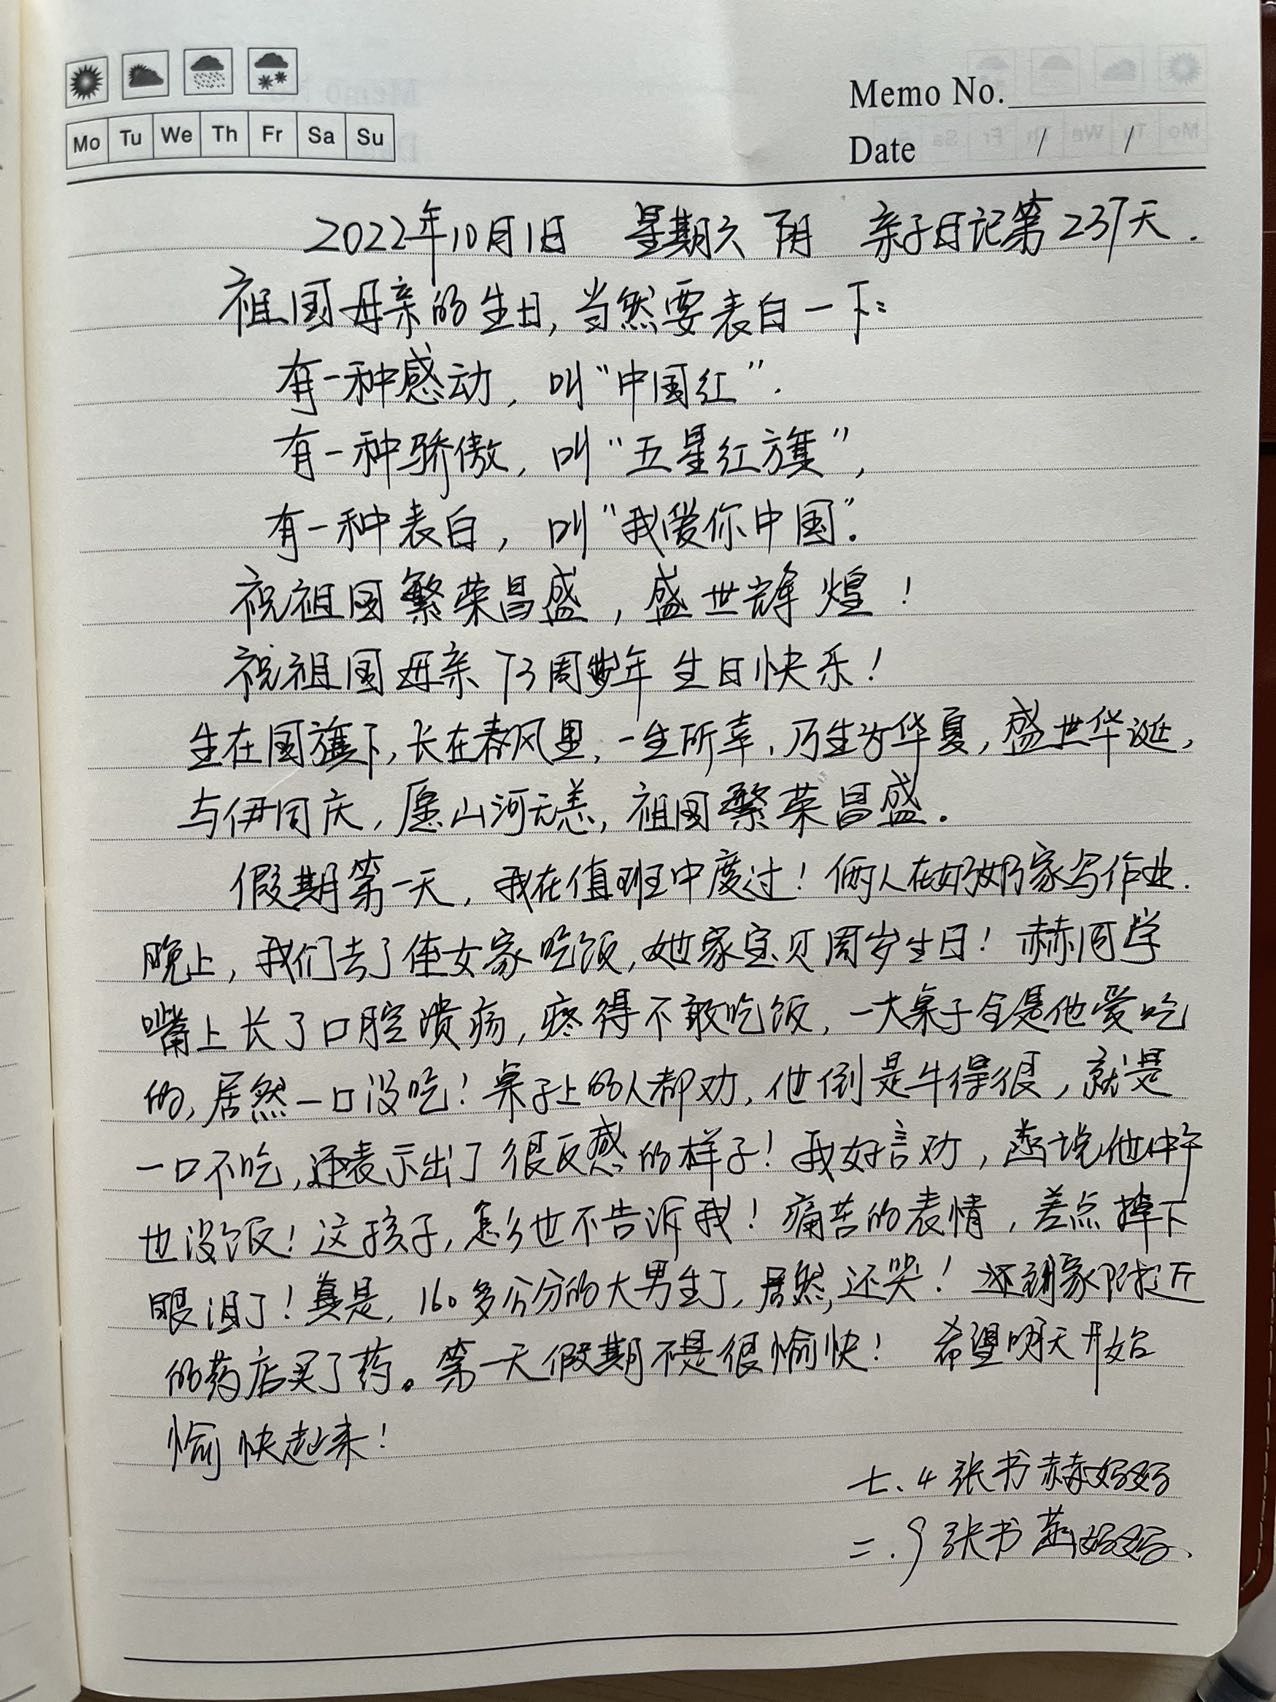 Mo Tu We Th Fr Sa Su
Memo No.
Date / /
2022年10月1日 星期六 阴 亲子日记第237天.
祖国母亲的生日,当然要表白一下:
有一种感动,叫“中国红”.
有一种骄傲,叫“五星红旗”,
有一种表白,叫“我爱你中国”.
祝祖国繁荣昌盛,盛世辉煌!
祝祖国母亲73周年生日快乐!
生在国旗下,长在春风里,一生所幸,乃生于华夏,盛世华诞,
与伊同庆,愿山河无恙,祖国繁荣昌盛.
假期第一天,我在值班中度过!俩人在奶奶家写作业.
晚上,我们去了侄女家吃饭,她家宝贝周岁生日!赫同学
嘴上长了口腔溃疡,疼得不敢吃饭,一大桌子全是他爱吃
的,居然一口没吃!桌子上的人都劝,他倒是牛得很,就是
一口不吃,还表示出了很反感的样子!我好言劝,说他中午
也没饭!这孩子,怎么也不告诉我!痛苦的表情,差点掉下
眼泪了!真是,160多公分的大男生了,居然,还哭!还到家附近
的药店买了药。第一天假期不是很愉快!希望明天开始
愉快起来!
七.4张书赫妈妈
二.9张书 妈妈.